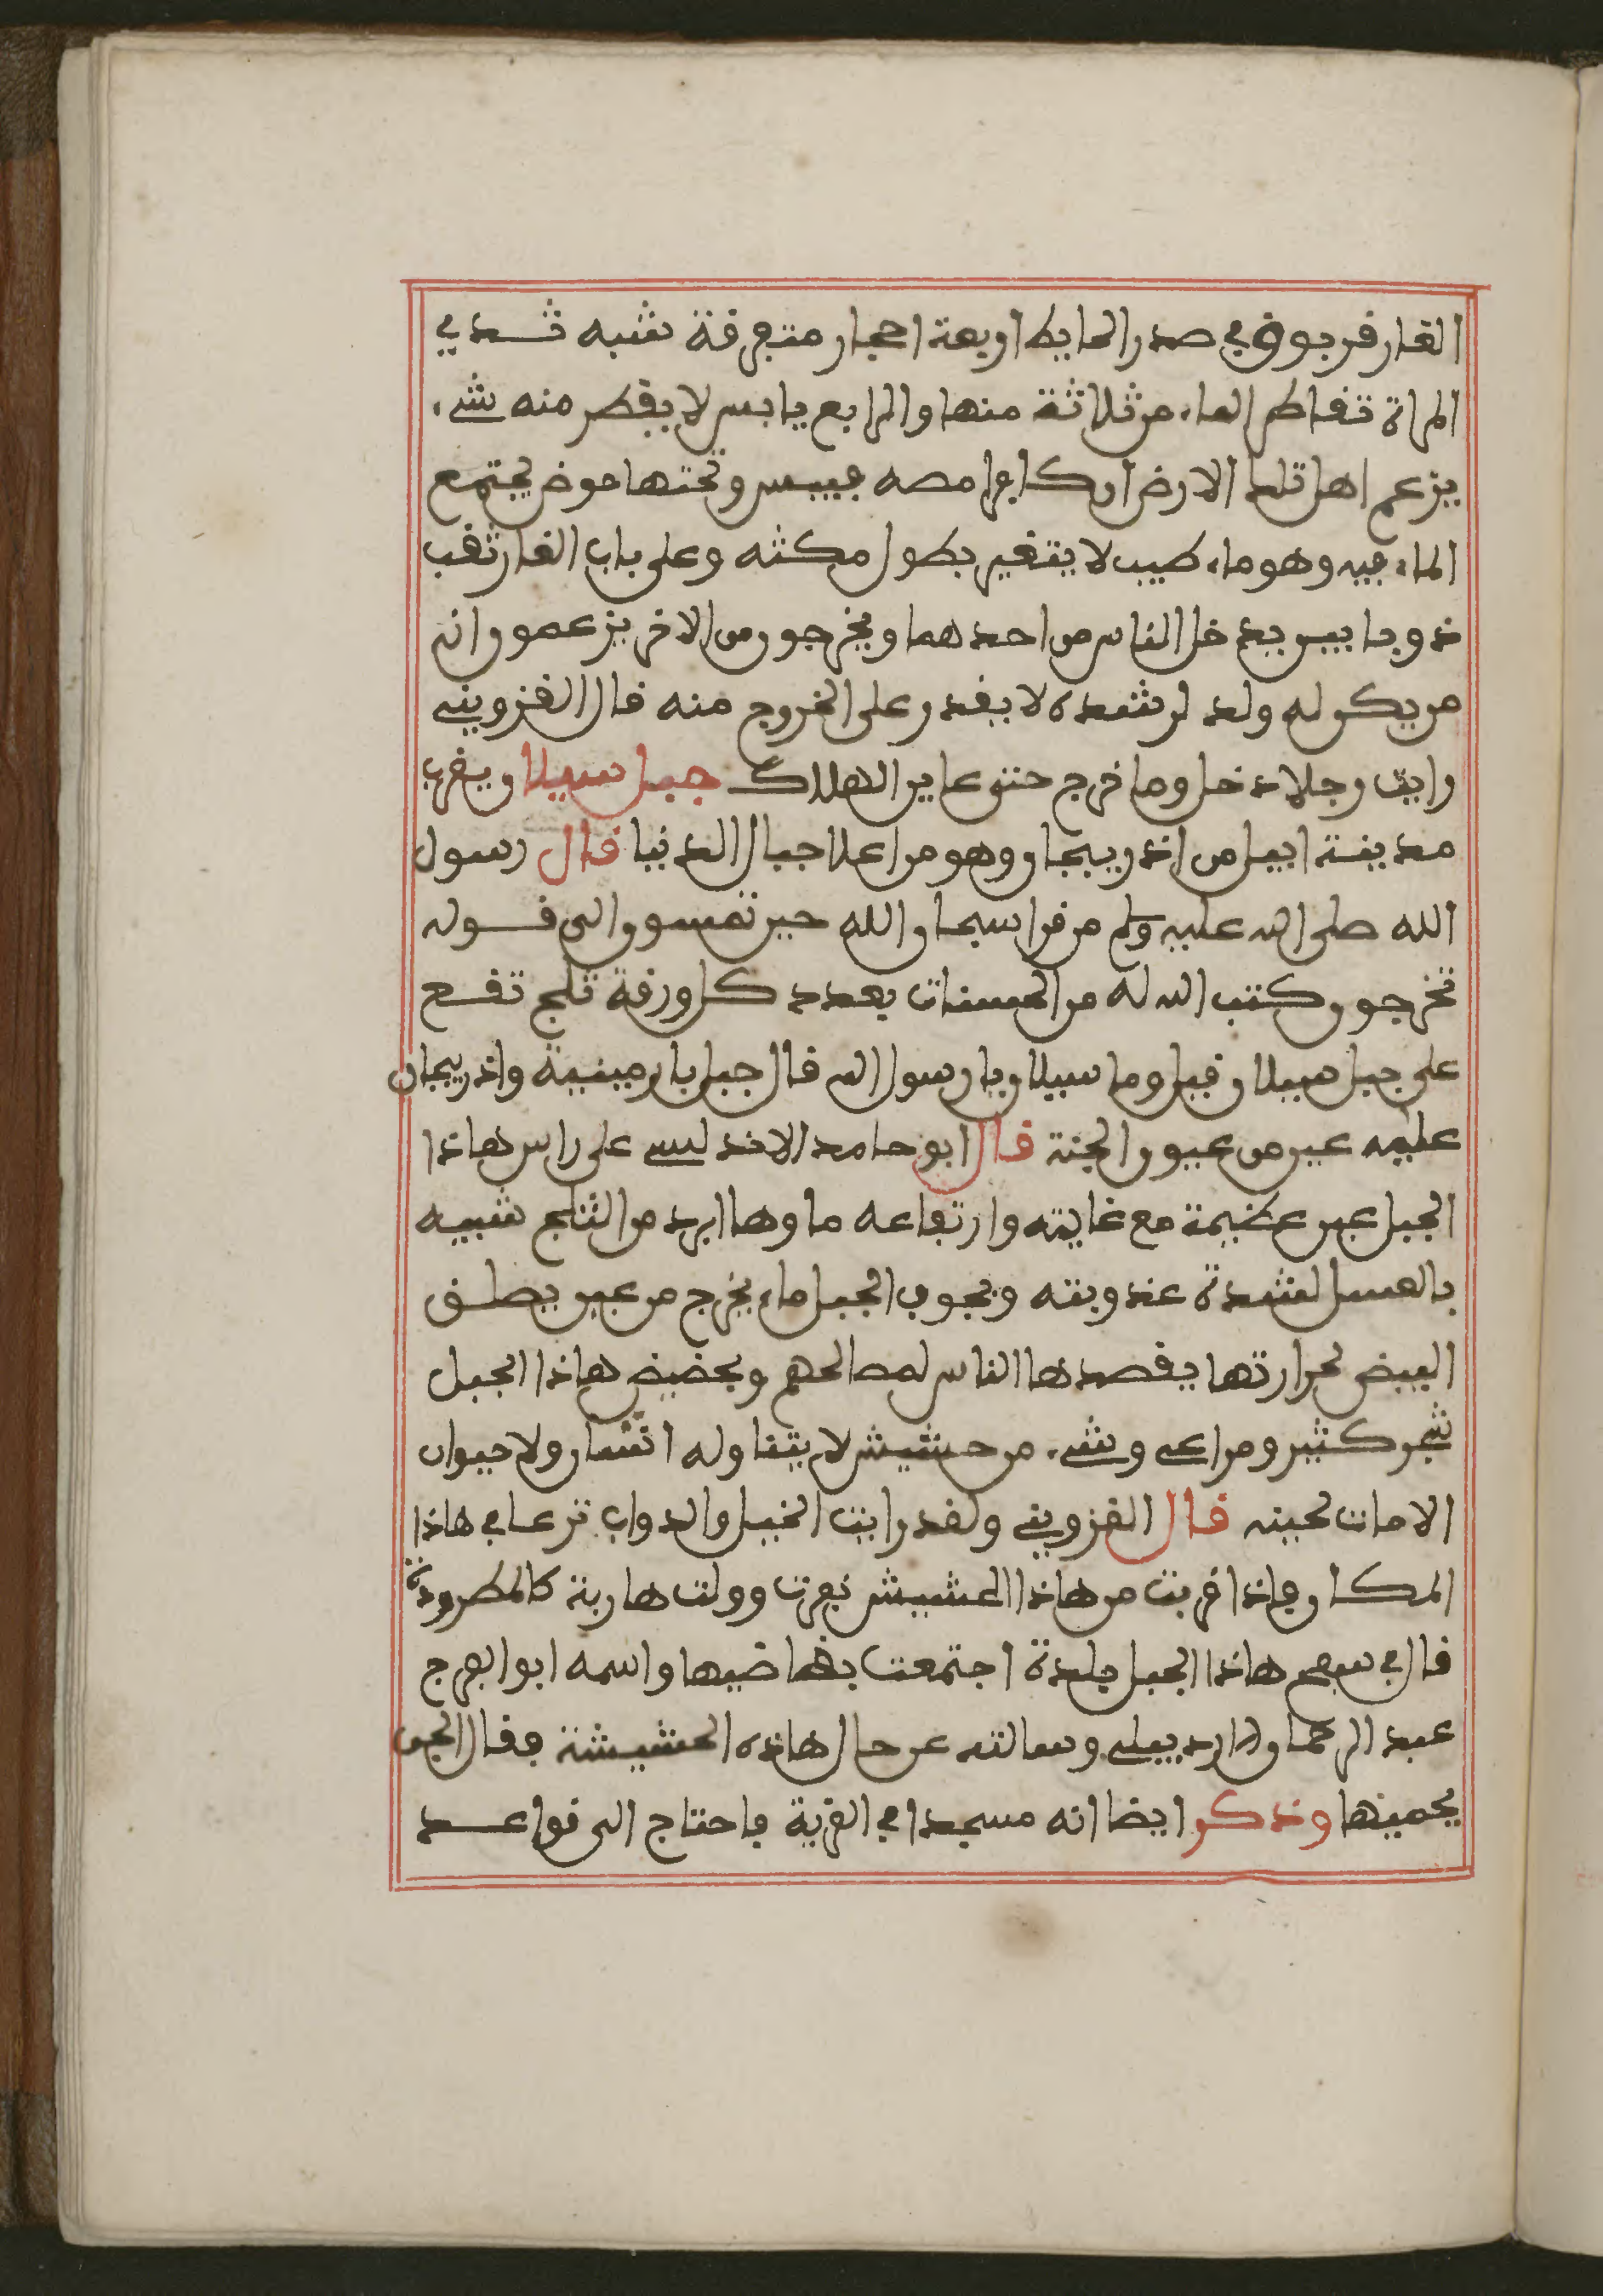 الغار قربوق في صدر الحايط اربعة احجار متفرقة تشبه ثدي
المراة تقاطر الماء من ثلاثة منها والرابع يابس لا يقطر منه شيء
يزعم اهل تلك الارض ان كافرا مصه فيبس وتحتها حوض يجتمع
الماء فيه وهو ماء طيب لا يتغير بطول مكثه وعلى باب الغار ثقب
ذو بابين يدخل الناس من احدهما ويخرجون من الاخر يزعمون انه
من يكن له ولد لرشده لا يقدر على الخروج منه قال القزويني
رايت رجلا دخل وما خرج حتى عاين الهلاك جبل سبلان وبقرب
مدينة ابيل من اذربيجان وهو من اعلا جبال الدنيا قال رسول
الله صلى الله عليه وسلم من قرا سبحان الله حين تمسون الى قوله
تخرجون كتب الله له من الحسنات بعدد كل ورقة ثلج تقع
على جبل سبلان قيل وما سبلان يا رسول الله قال جبل بارمينية واذربيجان
عليه عين من عيون الجنة قال ابو حامد الاندلسي على راس هاذا
الجبل عين عظيمة مع غايته وارتفاعه ماوها ابرد من الثلج شبيه
بالعسل لشدة عذوبته وبجوف الجبل ماء يخرج من عين يصلق
البيض لحرارتها يقصدها الناس لمصالحهم وبحضيض هاذا الجبل
شجر كثير ومراعي وشيء من حشيش لا يتناوله انسان ولا حيوان
الا مات لحينه قال القزويني ولقد رايت الخيل والدواب ترعا في هاذا
المكان فاذا قربت من هاذا الحشيش نفرت وولت هاربة كالمطرودة
قال في سفح هاذا الجبل بلدة اجتمعت بقاضيها واسمه ابو الفرج
عبد الرحمان الاردبيلي وسالته عن حال هاذه الحشيشة فقال الجن
يحمينها وذكر ايضا انه مسجدا في القرية فاحتاج الى قواعد